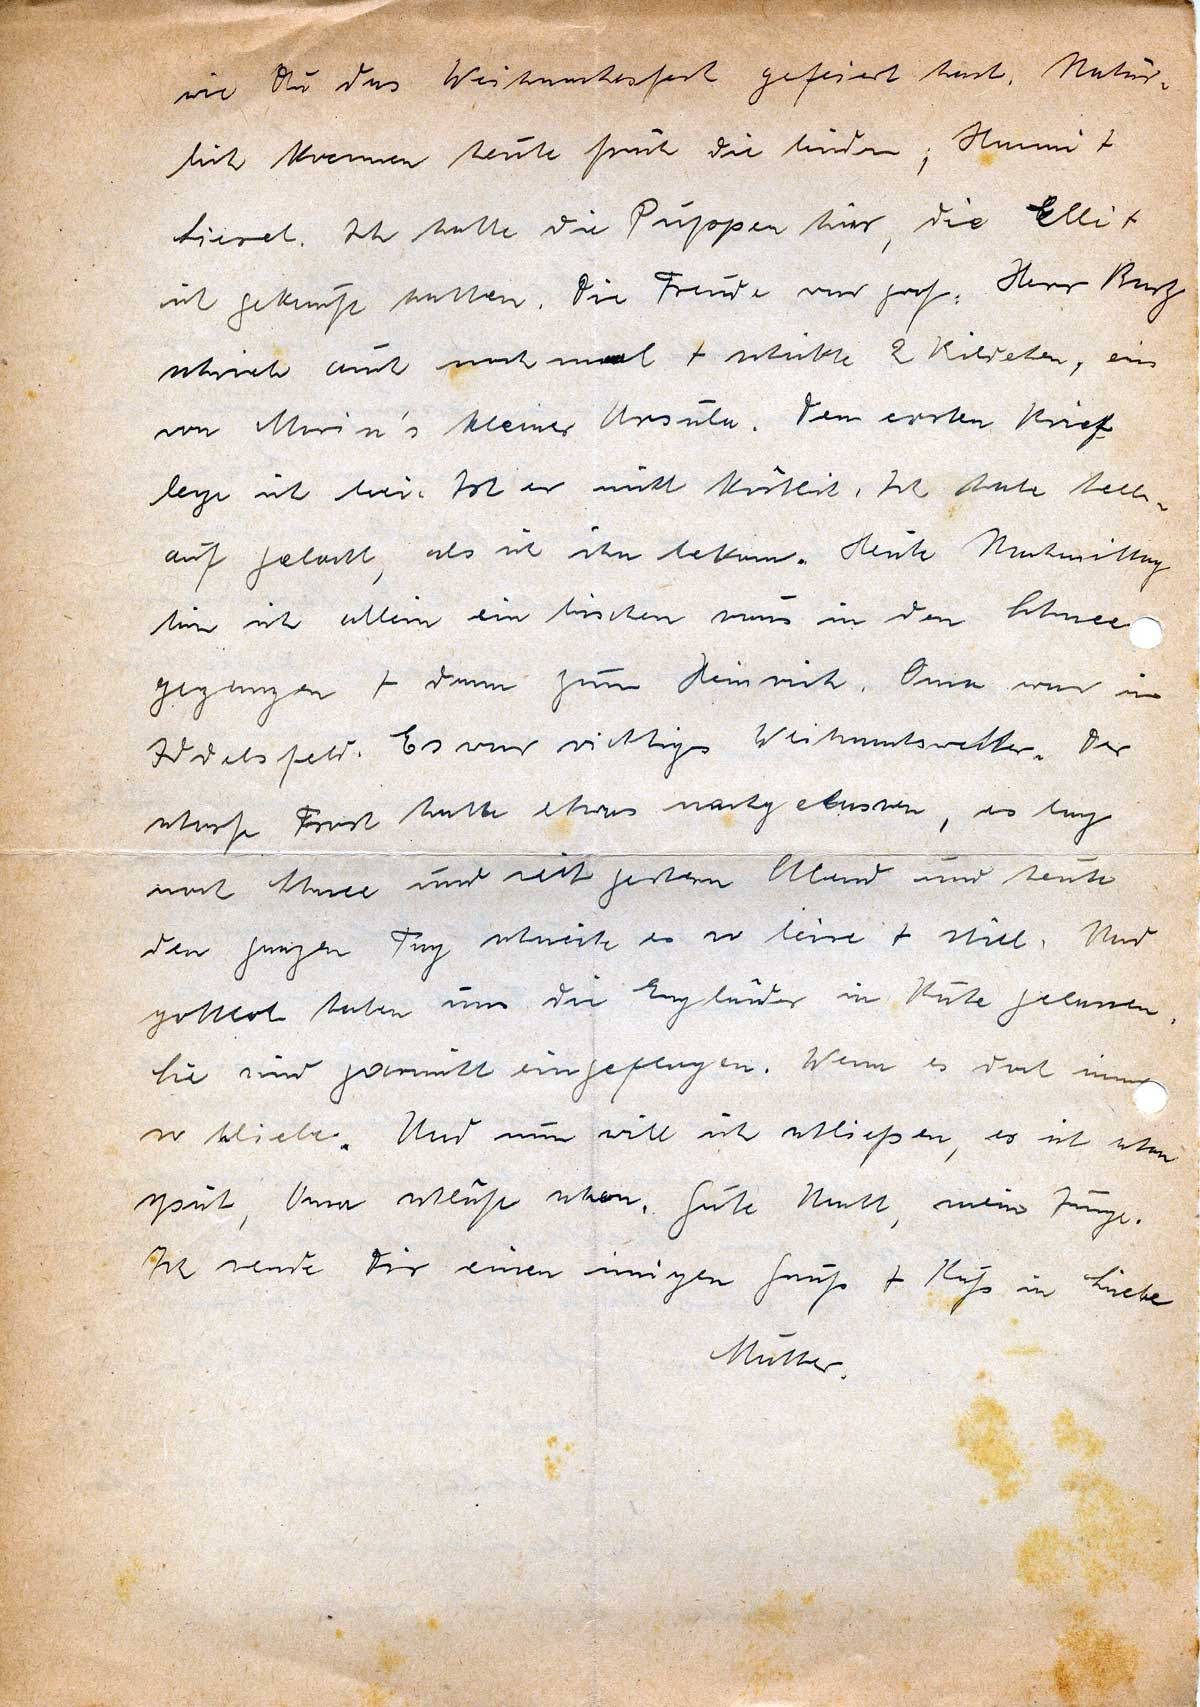 wie Du das Weihnachtsfest gefeiert hast. Natür-
lich kamen heute früh die beiden, Hanni +
Liesel. Ich hatte die Puppen hier, die Elli +
ich gekauft hatten. Die Freude war groß. Herr
schrieb auch noch mal + schickte 2 Bildchen, ein
von Maria's kleiner Ursula. Den ersten Brief
lege ich bei. Ist er nicht köstlich. Ich habe hell-
auf gelacht, als ich ihn bekam. Heute Nachmittag
bin ich allein ein bischen raus in den Schnee
gegangen + dann zum Heinrich. Oma war in
Iddelsfeld. Es war richtiges Weihnachtswetter. Der
scharfe Frost hatte etwas nachgelassen, es lag
noch Schnee und seit gestern Abend und heute
den ganzen Tag schneite es so leise + still. Und
gottlob haben uns die Engländer in Ruhe gelassen.
Sie sind garnicht eingeflogen. Wenn es doch immer
so bliebe. Und nun will ich schließen, es ist schon
spät, Oma schläft schon. Gute Nacht, mein Junge.
Ich sende Dir einen innigen Gruß + Kuß in Liebe
Mutter.